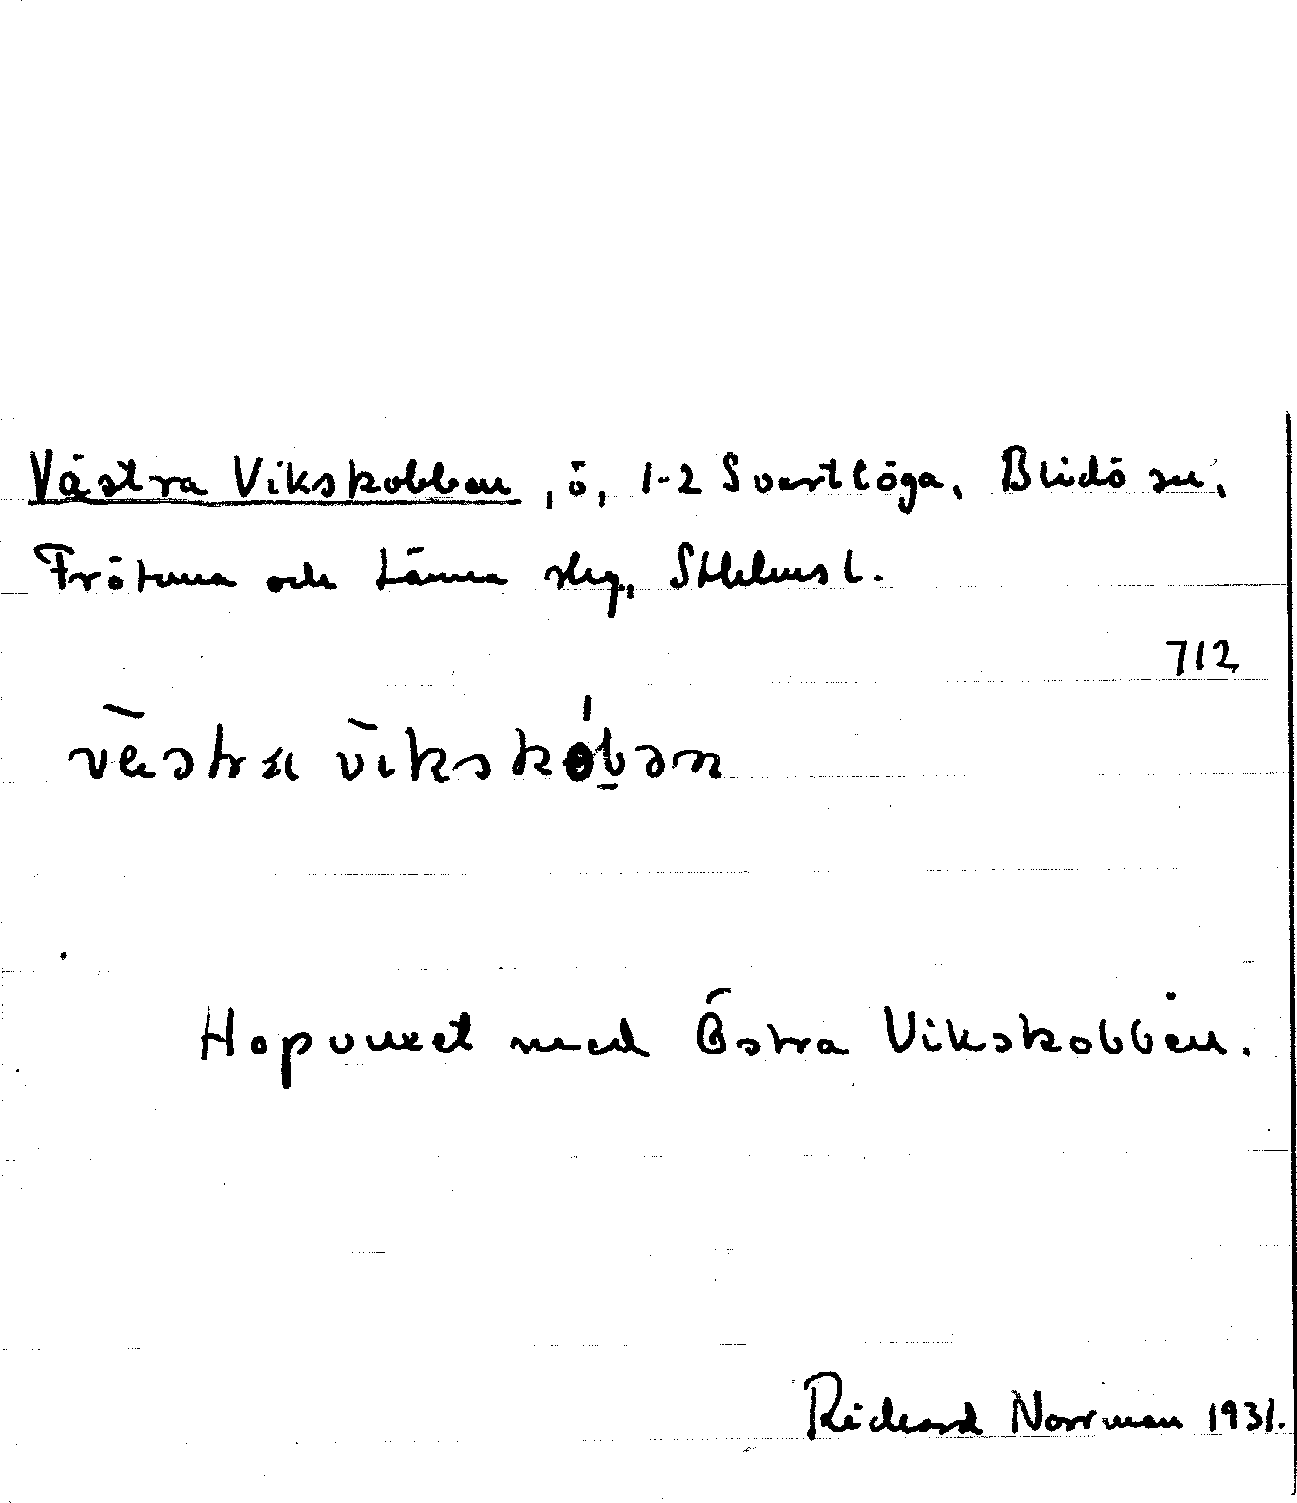 Västra Vikskobben, ö, 1-2 Svartlöga, Blidö sn,
Frötuna och Länna skg, Sthlms l.
712
västra vikskóbən
Hopvuxet med Östra Vikskobben.
Rickard Norrman 1931.